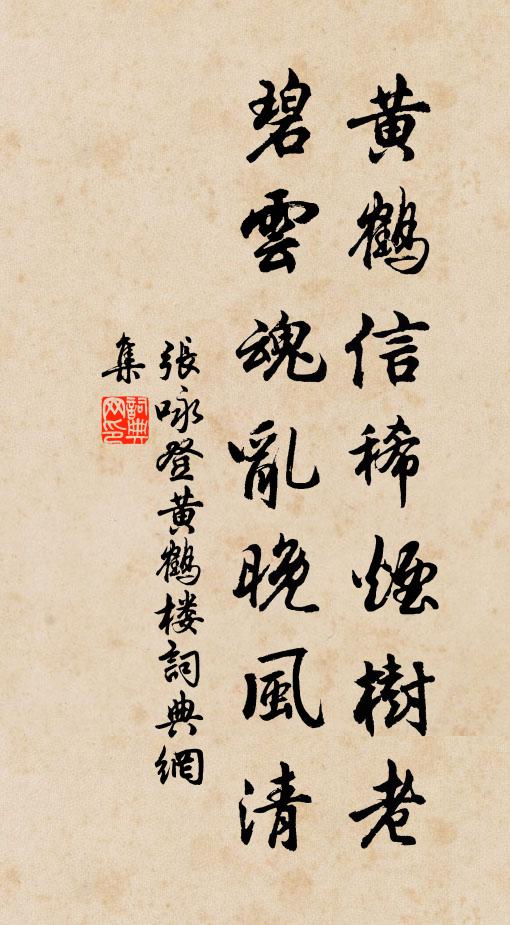 黃鶴信稀煙樹老
碧雲魂亂晚風清
張咏登黃鶴楼詞典網
集
詞典網印